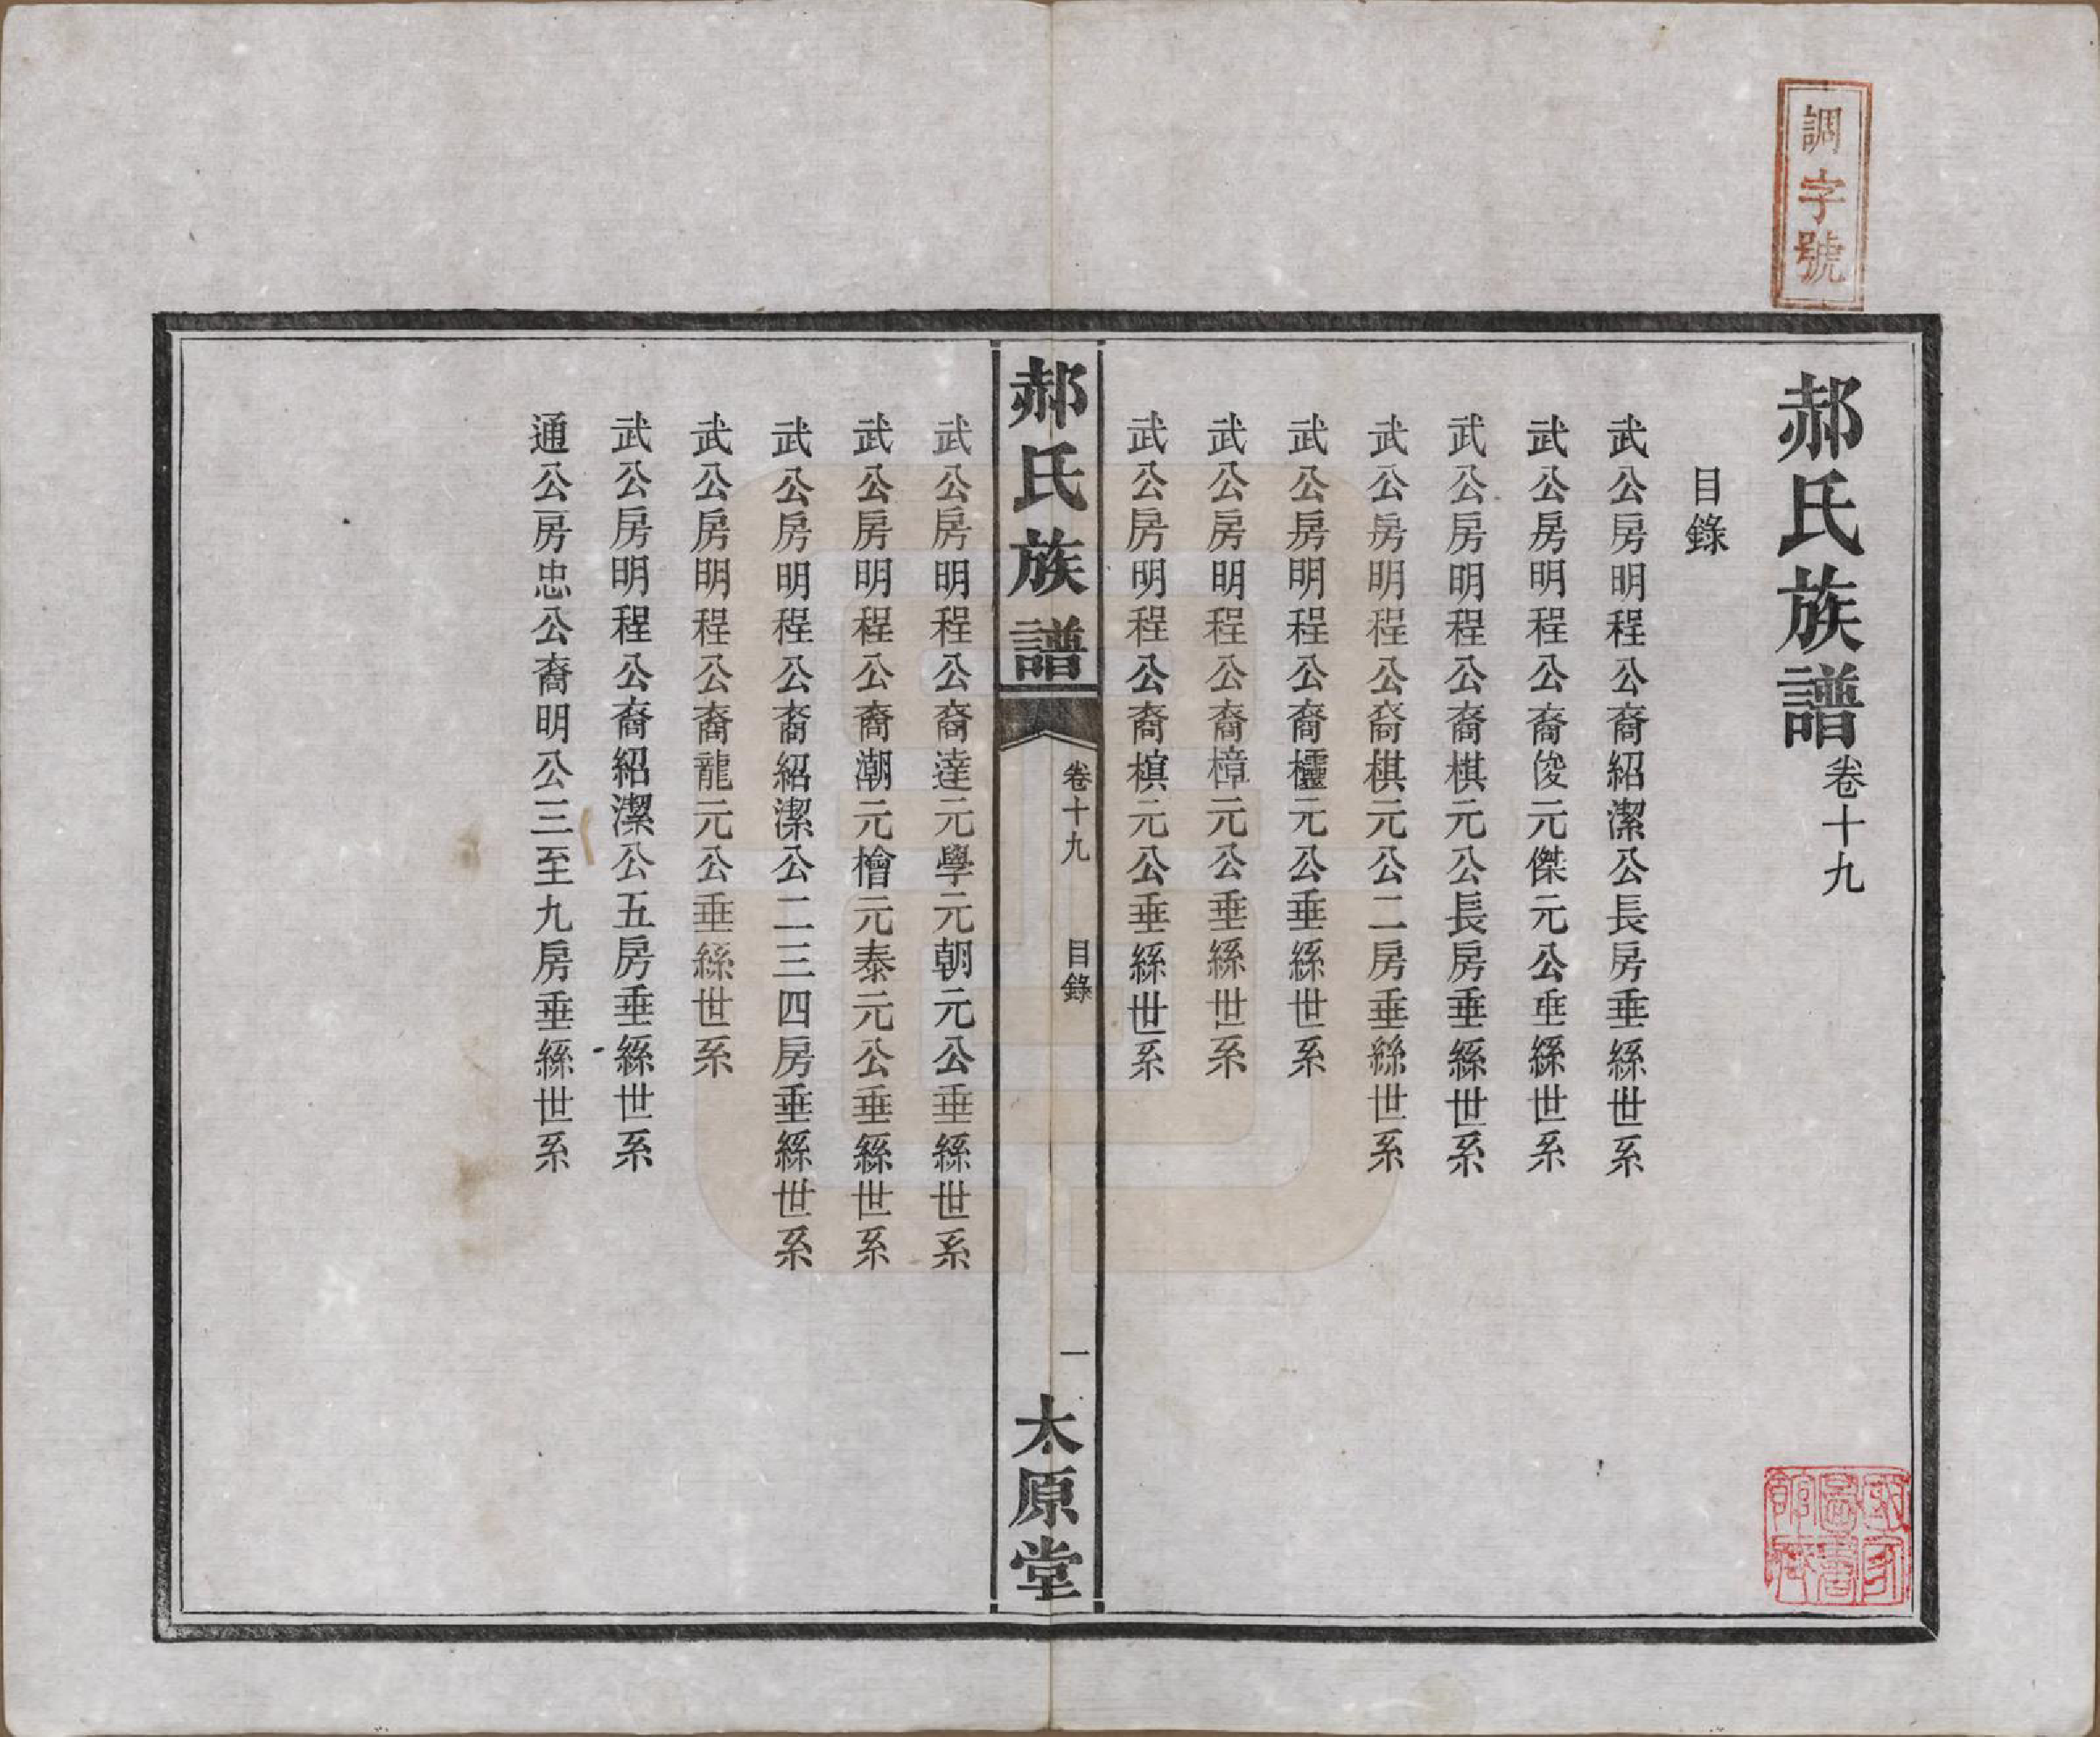 調字號
郝氏族譜卷十九
目錄
武公房明程公裔紹潔公長房垂緜世系
武公房明程公裔俊元傑元公垂緜世系
武公房明程公裔棋元公長房垂緜世系
武公房明程公裔棋元公二房垂緜世系
武公房明程公裔櫺元公垂緜世系
武公房明程公裔樟元公垂緜世系
武公房明程公裔槙元公垂緜世系
郝氏族譜 卷十九 目錄 一 太原堂
武公房明程公裔達元學元朝元公垂緜世系
武公房明程公裔潮元檜元泰元公垂緜世系
武公房明程公裔紹潔公二三四房垂緜世系
武公房明程公裔龍元公垂緜世系
武公房明程公裔紹潔公五房垂緜世系
通公房忠公裔明公三至九房垂緜世系
國家圖書館藏